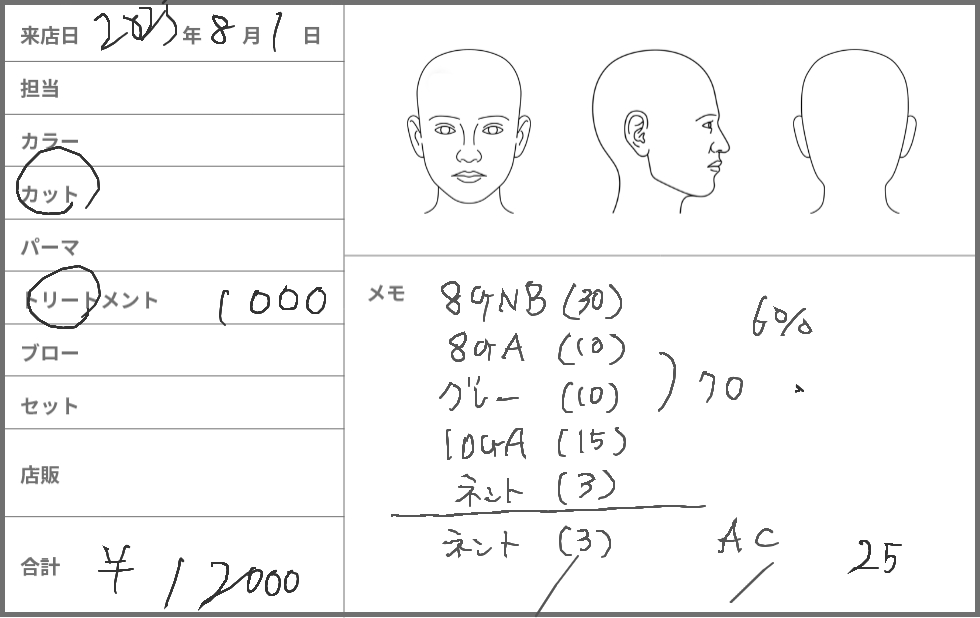 来店日 2023年8月1日
担当
カラー
カット
パーマ
トリートメント 1000
ブロー
セット
店販
合計 ¥12000
メモ 8GNB (30) 6%
8GA (10)
グレー (10) 70
10GA (15)
ネント (3)
ネント (3) AC 25